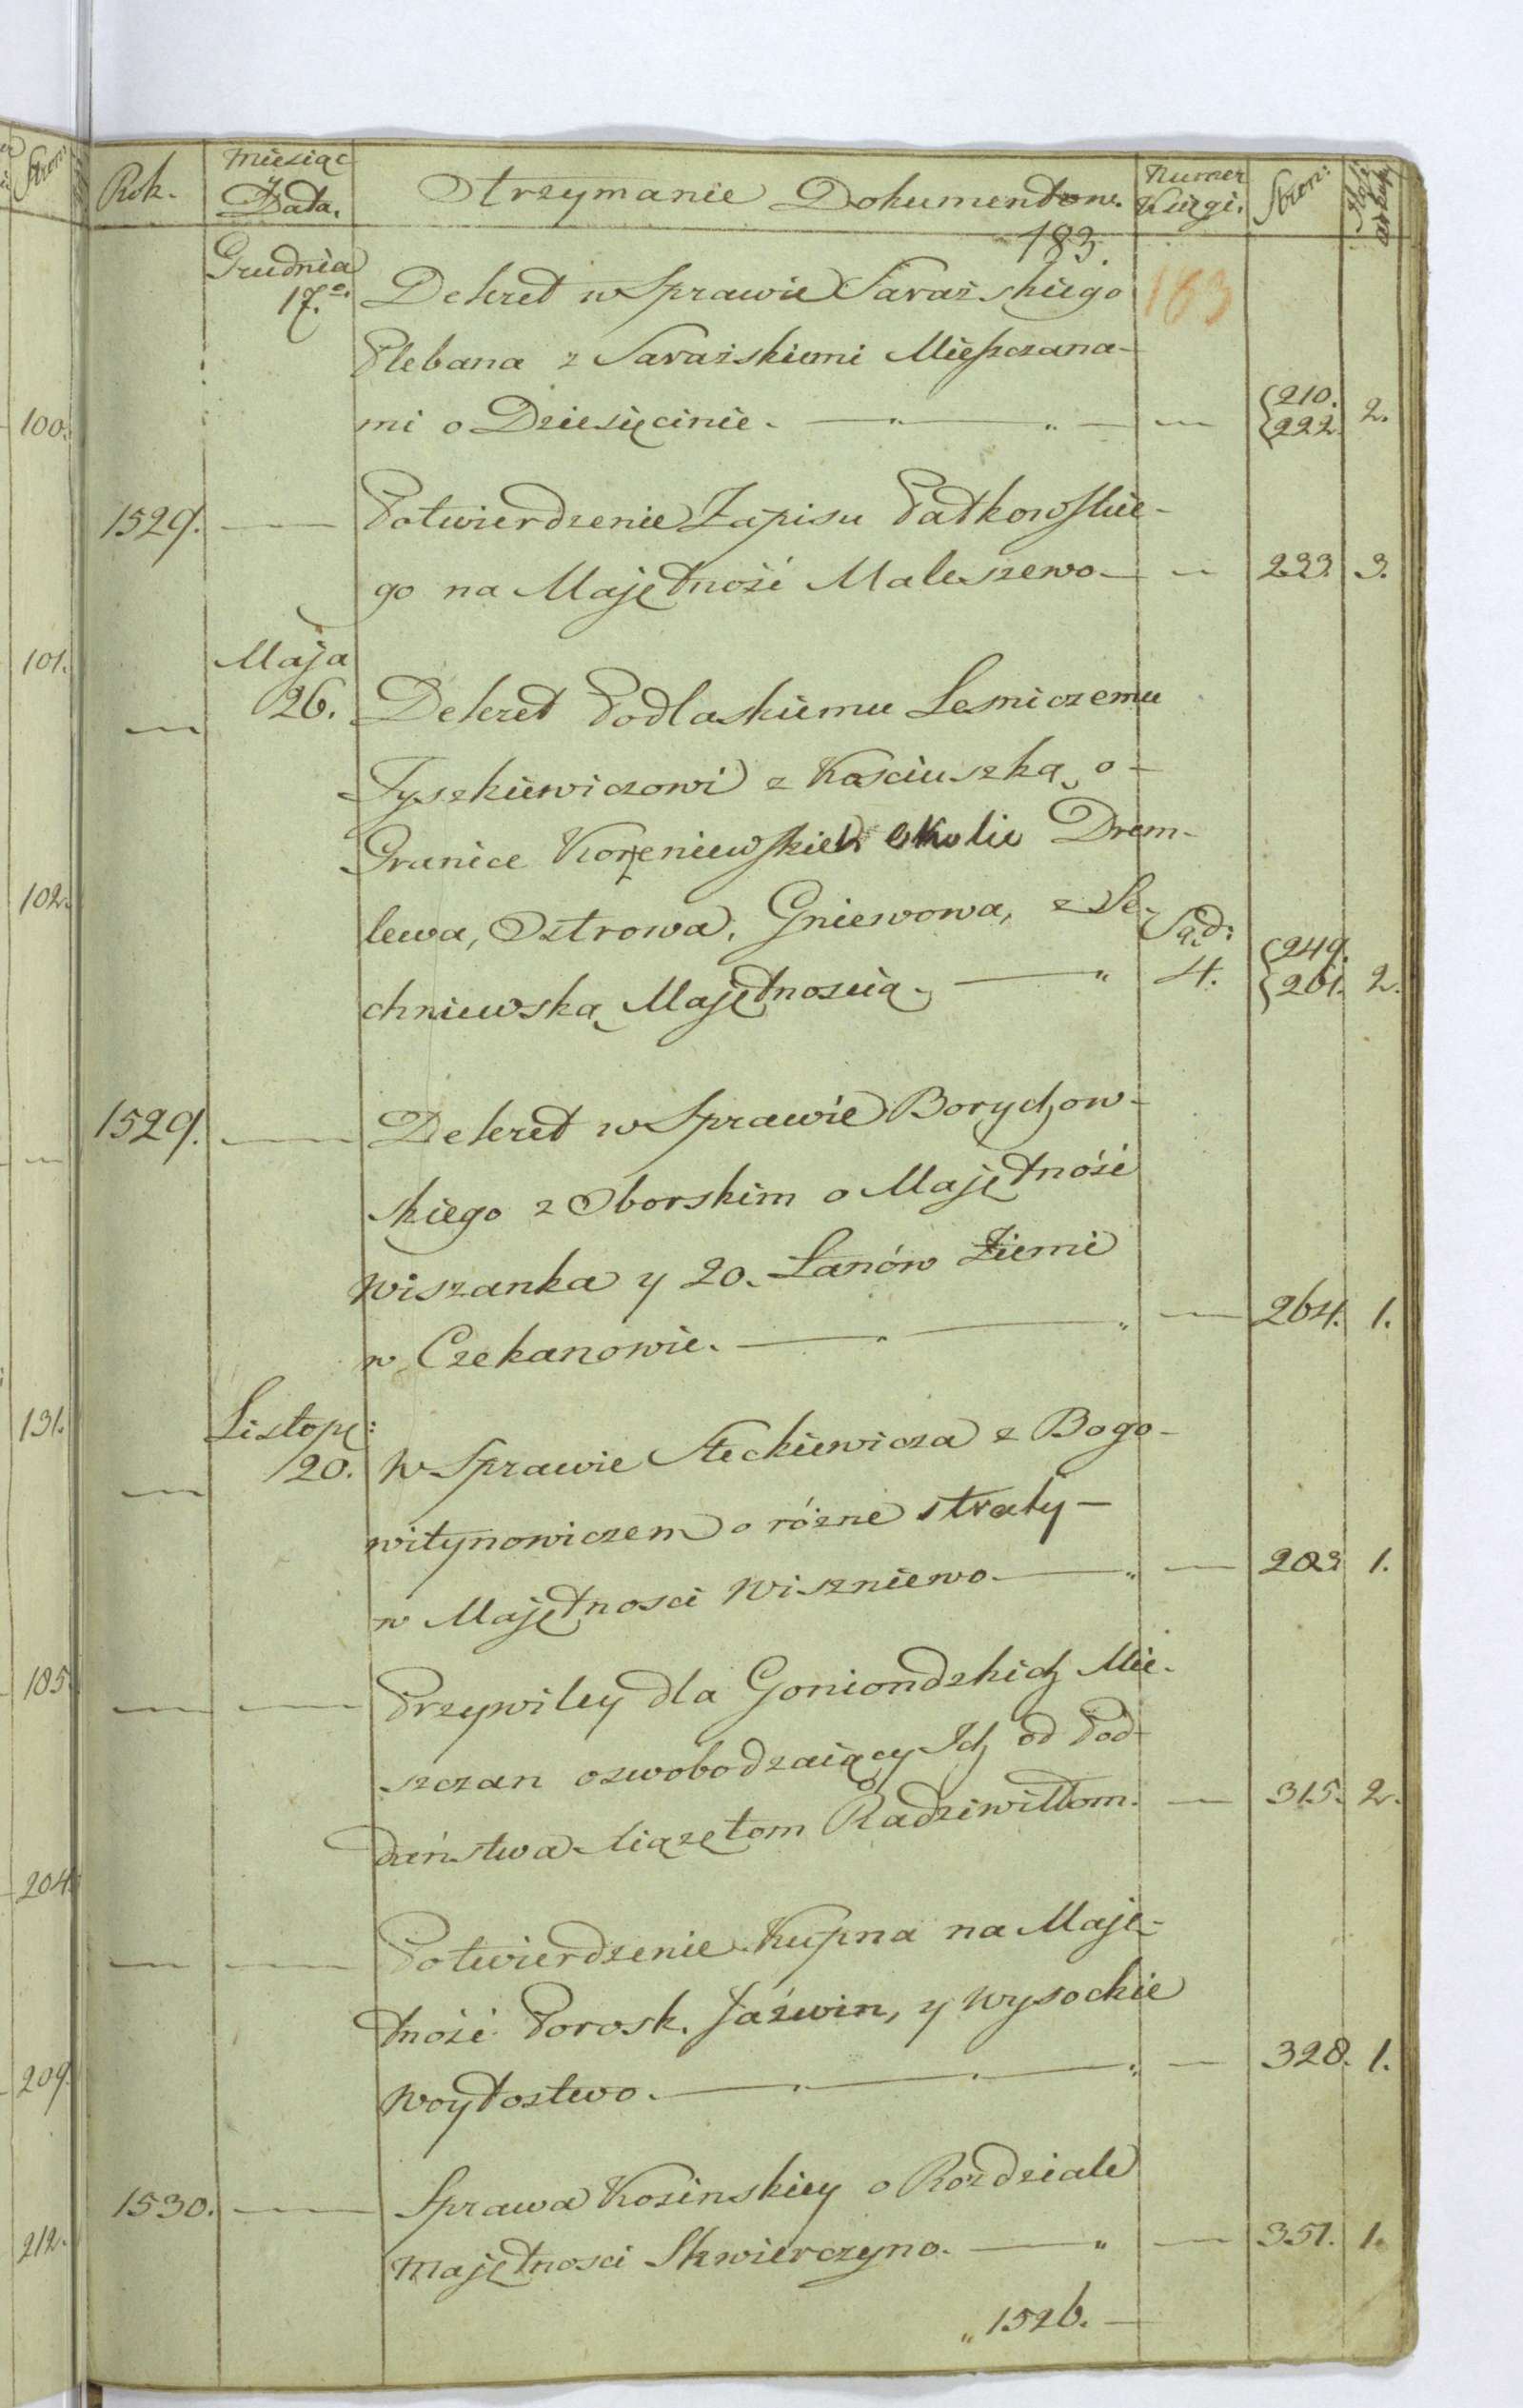 Rok. Miesiąc y Data. Otrzymanie Dokumentow. Numer Księgi. Stron: Ilość arkuszy
183.
Grudnia
17.º Dekret w Sprawie Surażskiego 183
Plebana z Surażskiemi Mieszczana-
mi o Dziesięcinie. 210. 222. 2.
1529. Potwierdzenie Zapisu Patkowskie-
go na Majętność Maleszewo 233. 3.
Maja
26. Dekret Podlaskiemu Lesniczemu
Tyszkiewiczowi z Kosciuszką o
Granice Korzeniewskich okolic Drem-
lewa, Ostrowa, Gniewowa, z Se- Sąd:
chniewską Majętnoscią. 4. 249. 261. 2.
1529. Dekret w Sprawie Borychow-
skiego z Oborskim o Majętność
Wiszanka y 20. Łanów Ziemi
w Czekanowie. 264. 1.
Listop:
20. W Sprawie Steckiewicza z Bogo-
witynowiczem o różne straty
w Majętnosci Wiszniewo 283 1.
Przywiley dla Goniondzkich Mie-
szczan oswobodzaiący Ich od Pod-
daństwa Xiązętom Radziwiłłom. 315. 2.
Potwierdzenie Kupna na Maję-
tność Porosk. Jaźwin, y Wysockie
Woytostwo. 328. 1.
1530. Sprawa Kosinskiey o Rozdziale
Majętnosci Skwierczyno. 351. 1.
„ 1526.
100.
101.
102.
131.
185.
204.
209.
212.